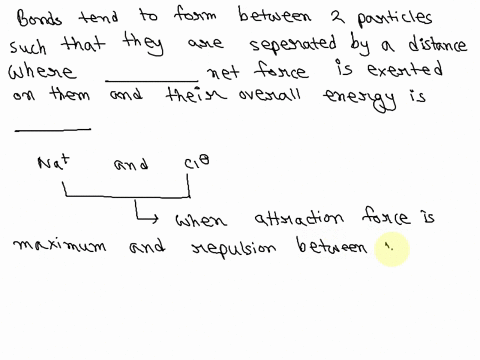 Bonds tend to form between 2 particles
such that they are seperated by a distance
where ________ net force is exerted
on them and their overall energy is
________
Na⁺ and Cl⊖
when attraction force is
maximum and repulsion between